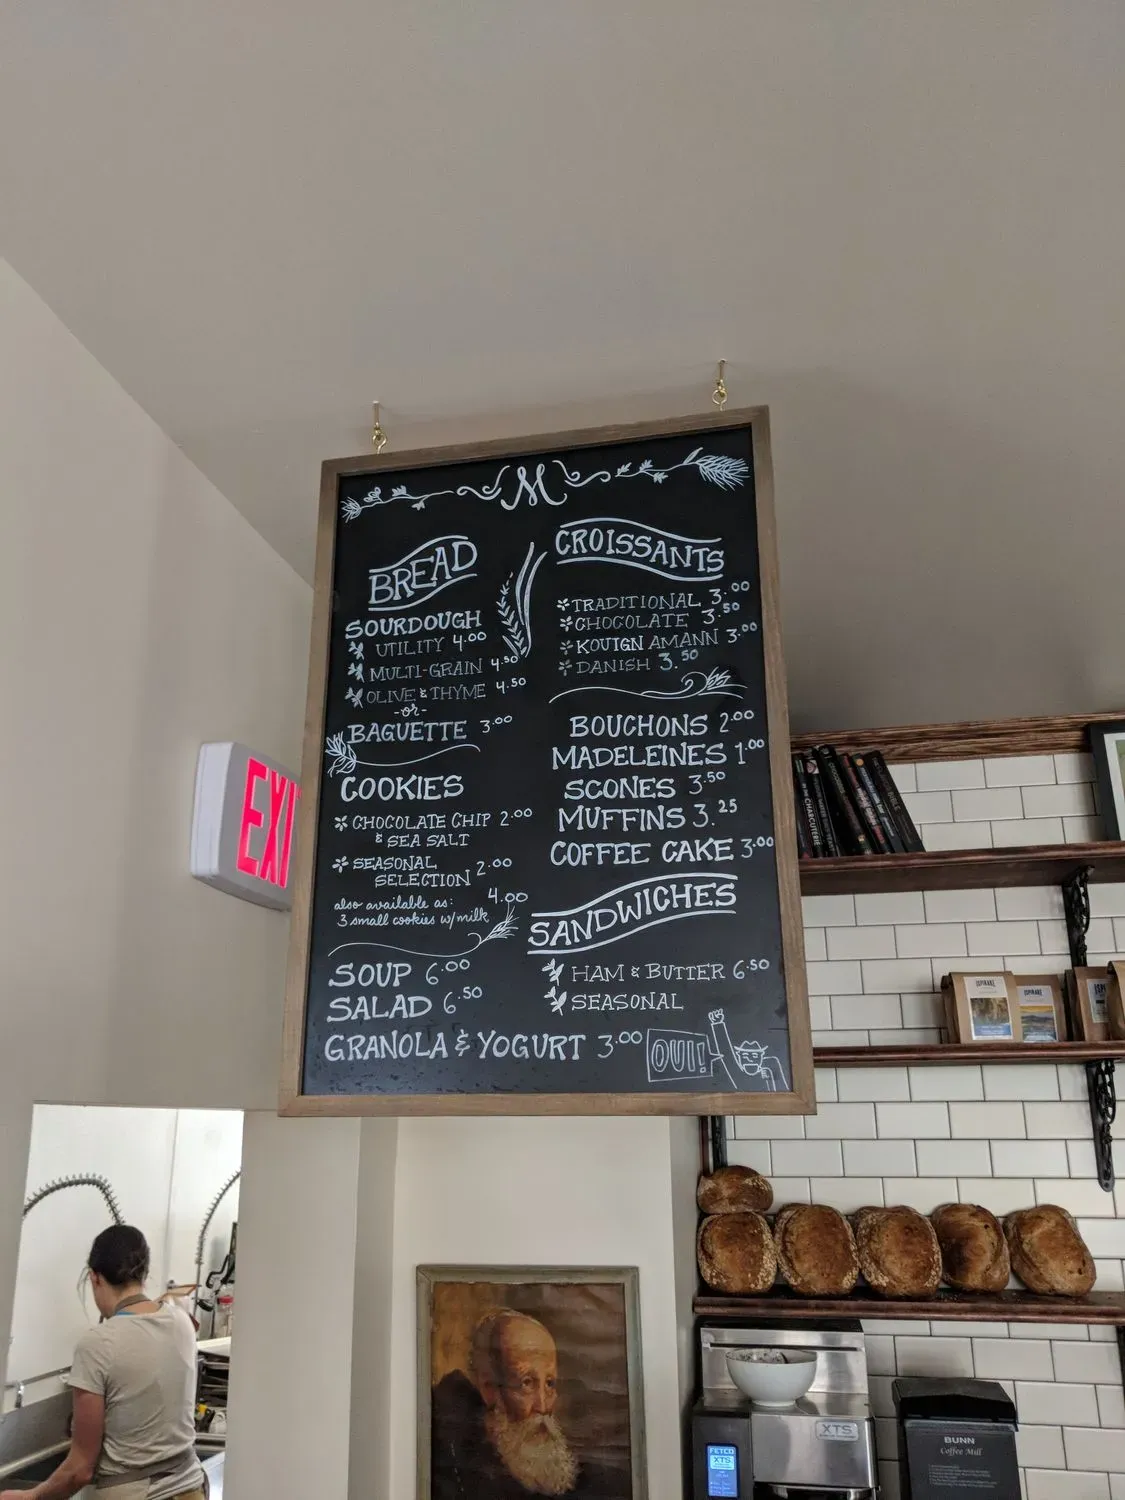 M
BREAD
SOURDOUGH
UTILITY 4.00
MULTI-GRAIN 4.50
OLIVE & THYME 4.50
-or-
BAGUETTE 3.00
COOKIES
CHOCOLATE CHIP 2.00
& SEA SALT
SEASONAL
SELECTION 2.00
also available as: 4.00
3 small cookies w/milk
SOUP 6.00
SALAD 6.50
GRANOLA & YOGURT 3.00
CROISSANTS
TRADITIONAL 3.00
CHOCOLATE 3.50
KOUIGN AMANN 3.00
DANISH 3.50
BOUCHONS 2.00
MADELEINES 1.00
SCONES 3.50
MUFFINS 3.25
COFFEE CAKE 3.00
SANDWICHES
HAM & BUTTER 6.50
SEASONAL
OUI!
EXI
CHARCUTERIE
XTS
FETCO
XTS
BUNN
Coffee Mill